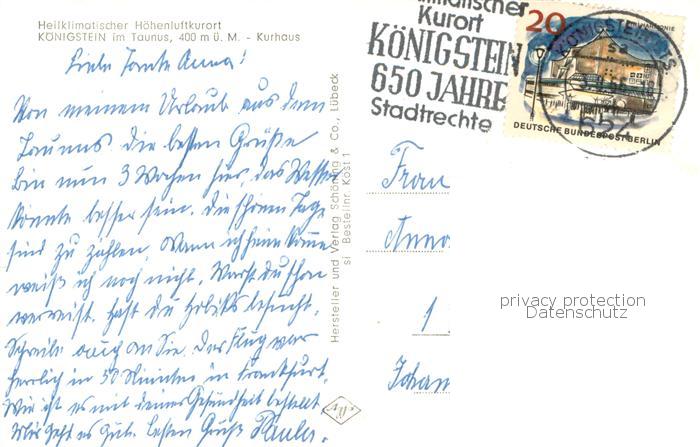 Heilklimatischer Höhenluftkurort
KÖNIGSTEIN im Taunus, 400 m ü. M. - Kurhaus
Liebe Tante Anna!
Von meinem Urlaub aus dem
Taunus die besten Grüße
bin nun 3 Wochen hier, das Wetter
könnte besser sein. Die schönen Tage
sind zu zählen. Wann ich heim komme
weiß ich noch nicht. Warst du schon
verreist. Hast du besucht.
Schreibe auch an Sie. Der Flug war
herrlich in 50 Minuten in Frankfurt.
Wie ist es mit deiner Gesundheit bestellt
Mir geht es gut. besten Gruß
Hersteller und Verlag Schöning & Co., Lübeck
si Bestellnr. Köst 1
Kurort
KÖNIGSTEIN
650 JAHRE
Stadtrechte
20
KÖNIGSTEIN
DEUTSCHE BUNDESPOST BERLIN
624
Frau
Anna
1
Johan
privacy protection
Datenschutz